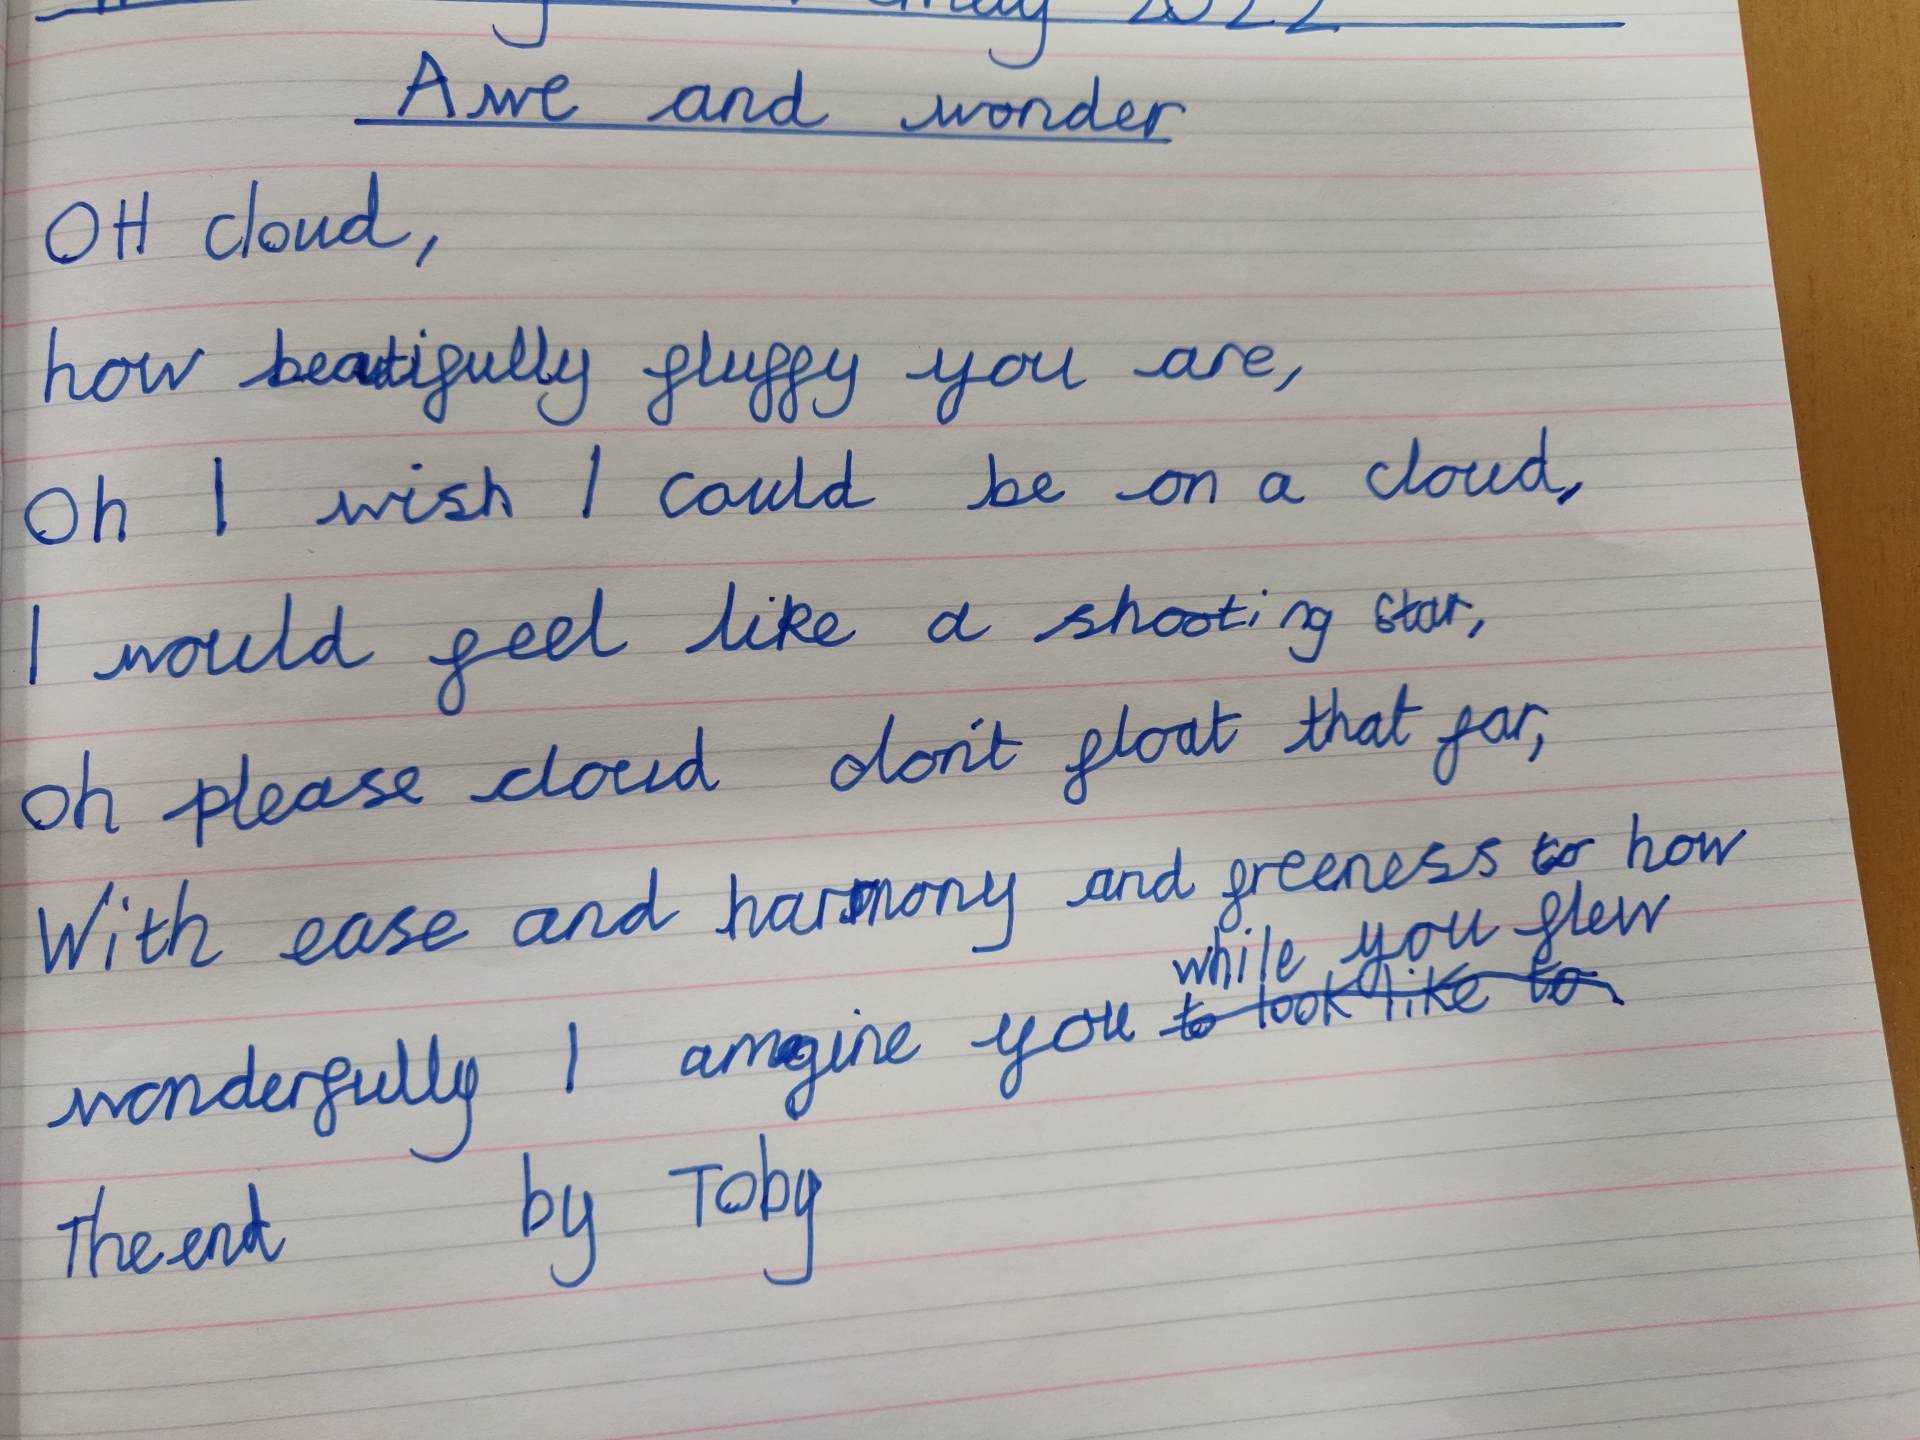 May 2022
Awe and wonder
OH cloud,
how beatifully fluffy you are,
Oh I wish I could be on a cloud,
I would feel like a shooting star,
Oh please cloud don't float that far,
With ease and harmony and greeness to how
while you flew
wonderfully I amagine you to look like to
The end by Toby